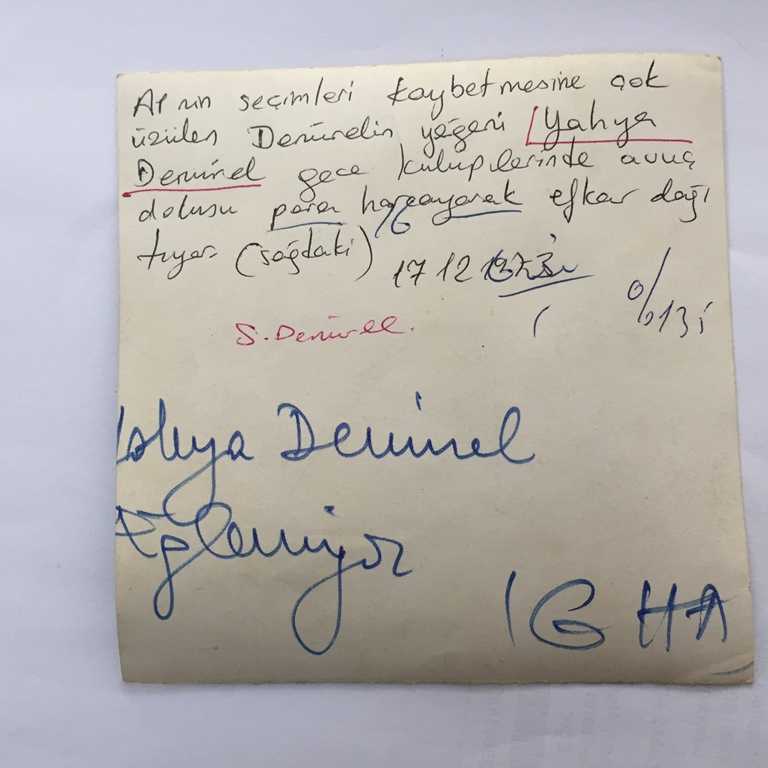 AP nin seçimleri kaybetmesine çok
üzülen Demirelin yeğeni Yahya
Demirel gece kulüplerinde avuç
dolusu para harcayarak efkar dağı
tıyor (sağdaki)
17 12
S. Demirel.
Yahya Demirel
Eğleniyor
HA